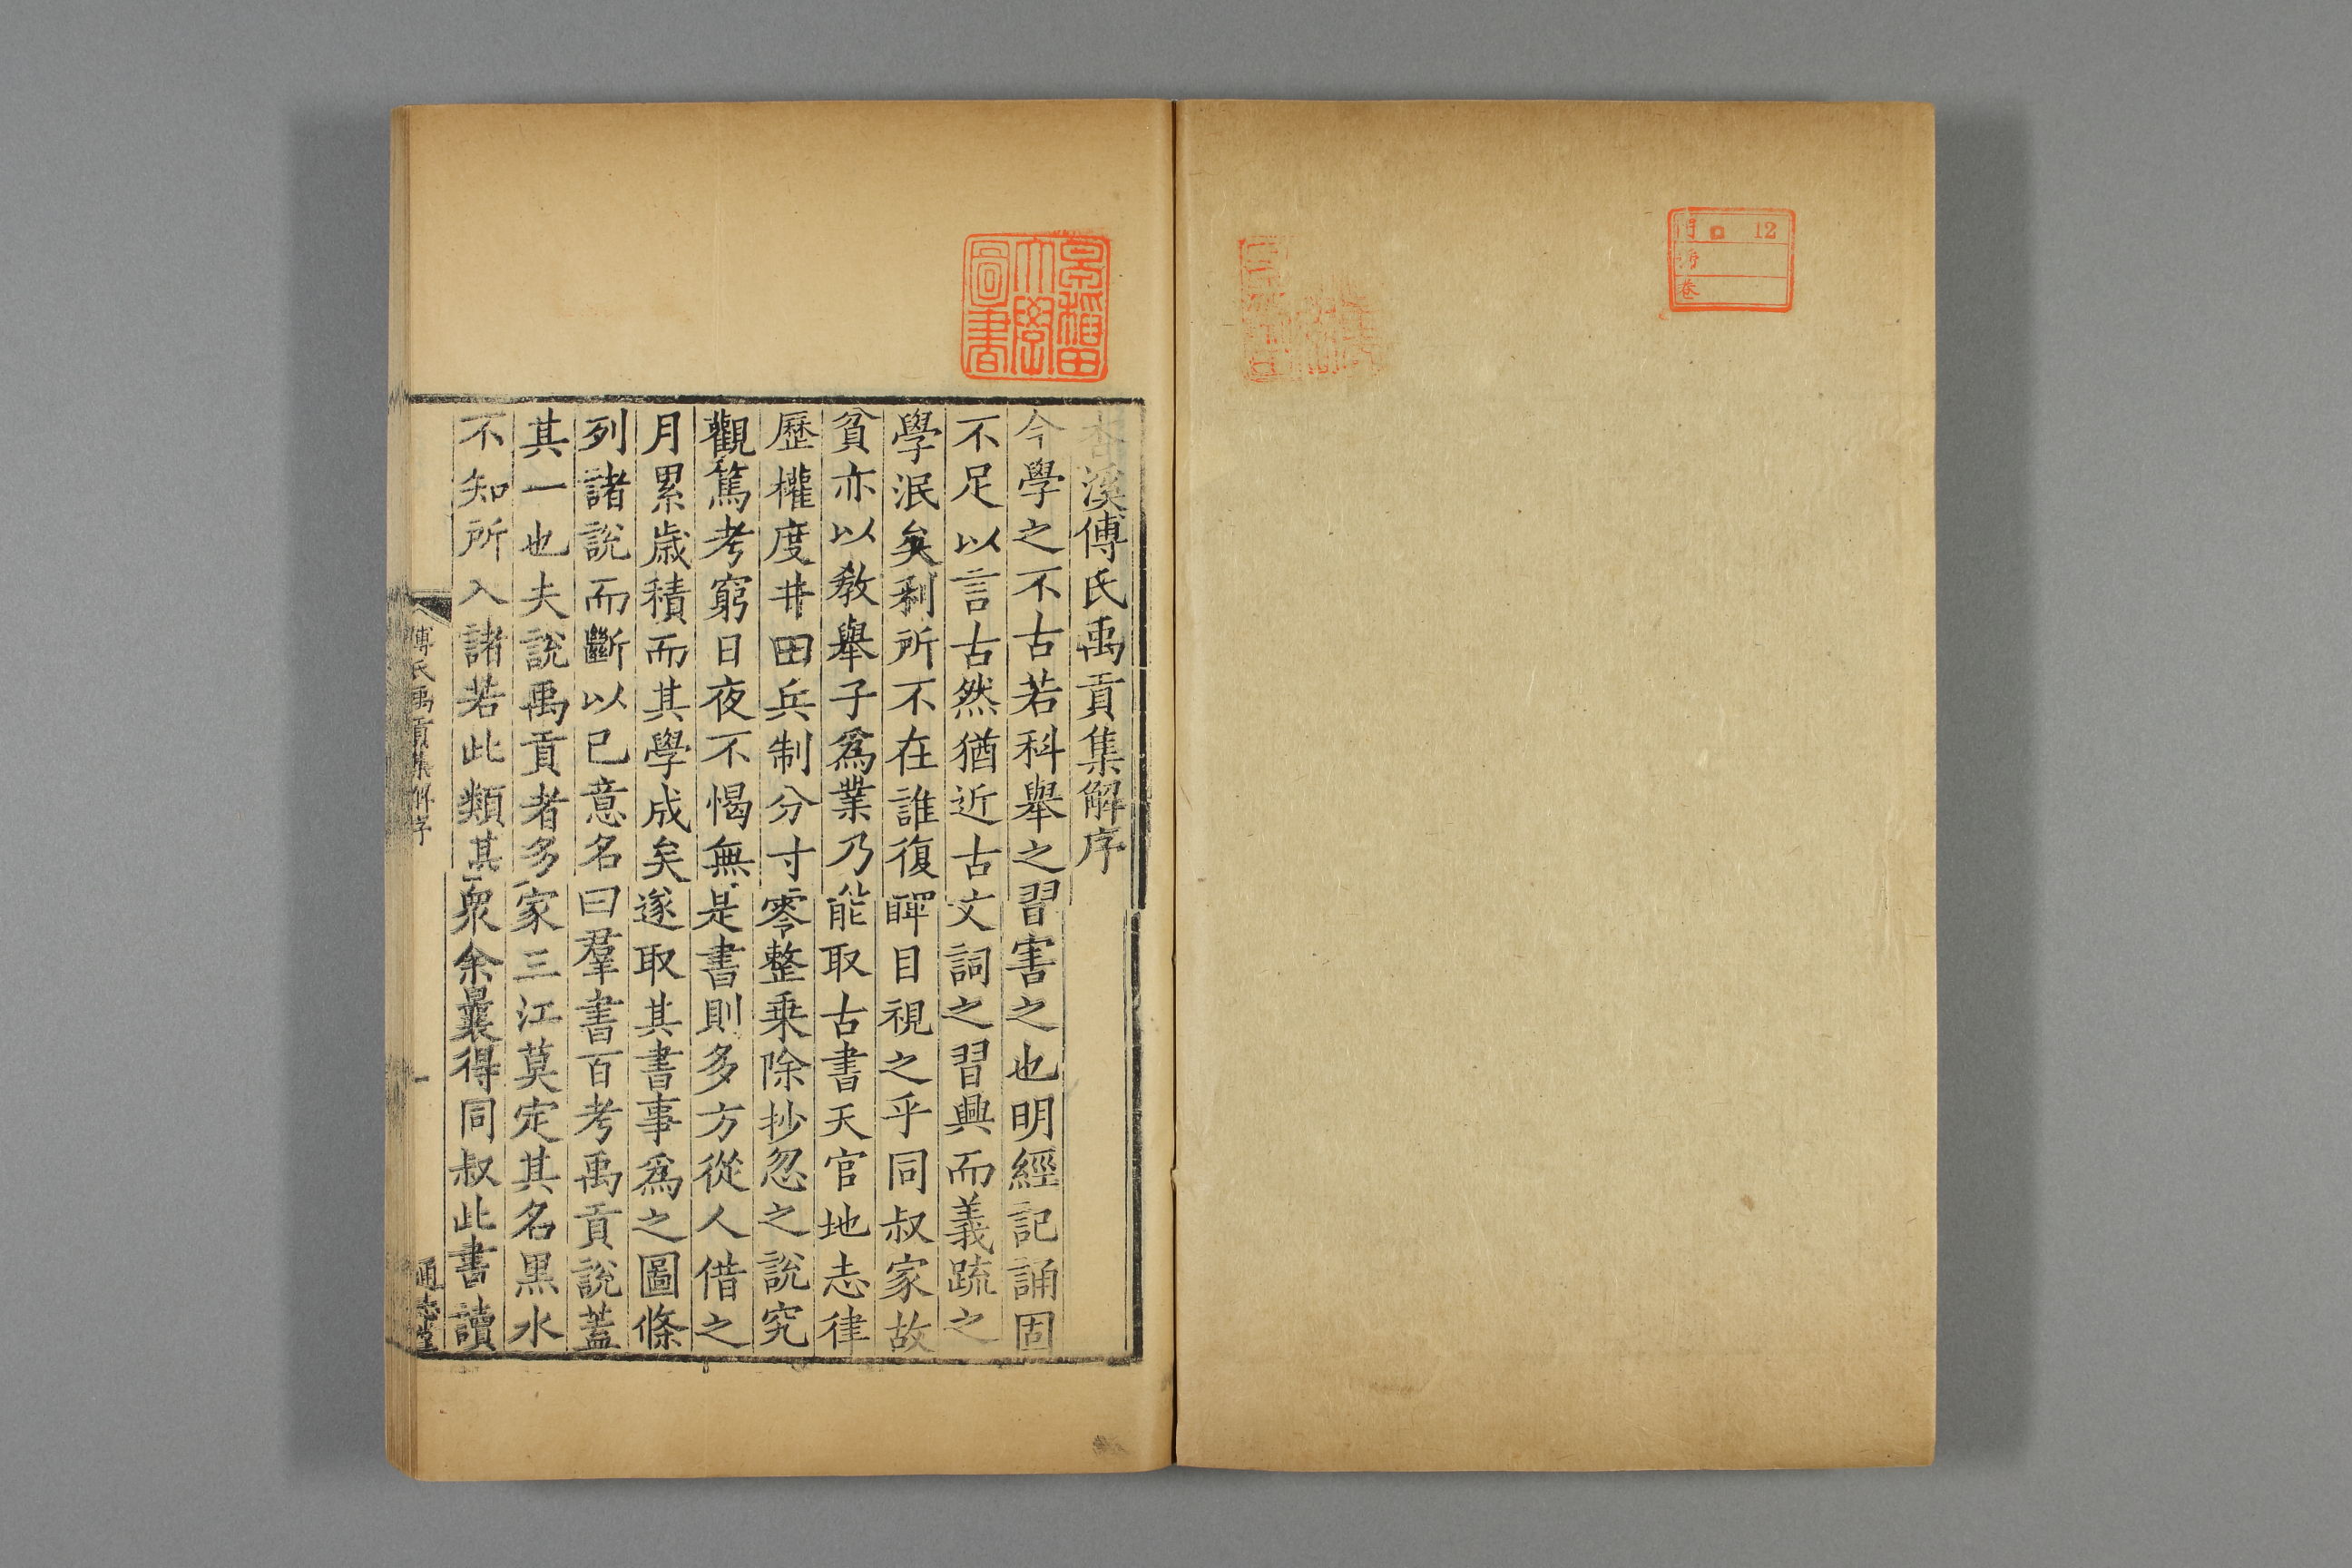 門 12
號
卷
早稲田
大學
圖書
杏溪傅氏禹貢集解序
今學之不古若科舉之習害之也明經記誦固
不足以言古然猶近古文詞之習興而義疏之
學泯矣利所不在誰復睜目視之乎同叔家故
貧亦以教舉子爲業乃能取古書天官地志律
歷權度井田兵制分寸零整乗除抄忽之說究
觀篤考窮日夜不愒無是書則多方從人借之
月累歲積而其學成矣遂取其書事爲之圖條
列諸說而斷以已意名曰羣書百考禹貢說蓋
其一也夫說禹貢者多家三江莫定其名黒水
不知所入諸若此類其衆余曩得同叔此書讀
傅氏禹貢集解序
一
通志堂